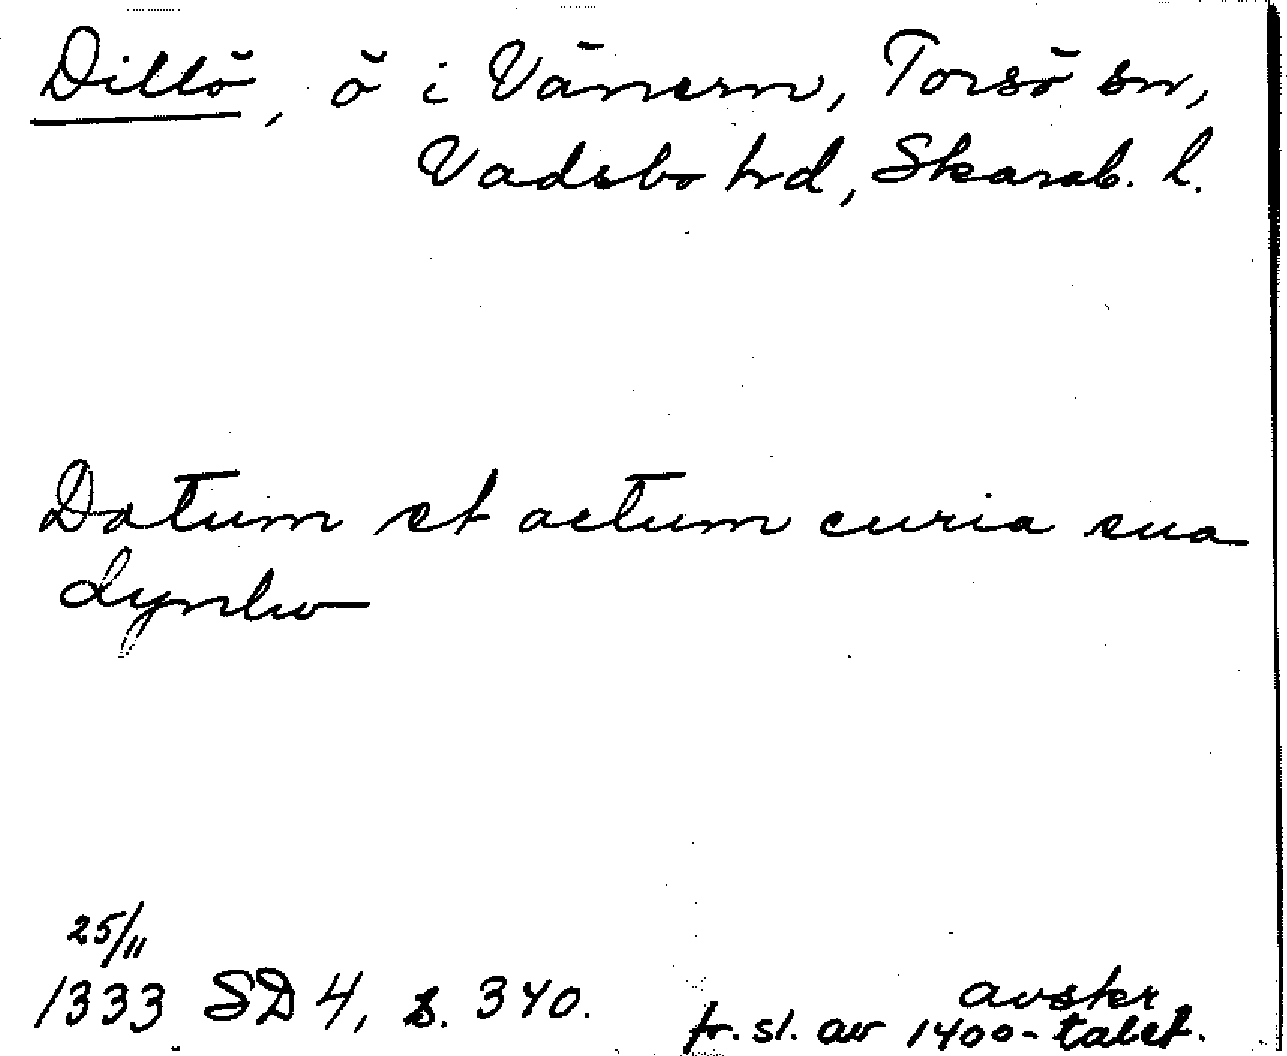 Dillö, ö i Vänern, Torsö sn,
Vadsbo hd, Skarab. l.
Datum et actum curia sua
dynlw
25/11
1333 SD 4, s. 340.
avskr
fr. sl. av 1400-talet.